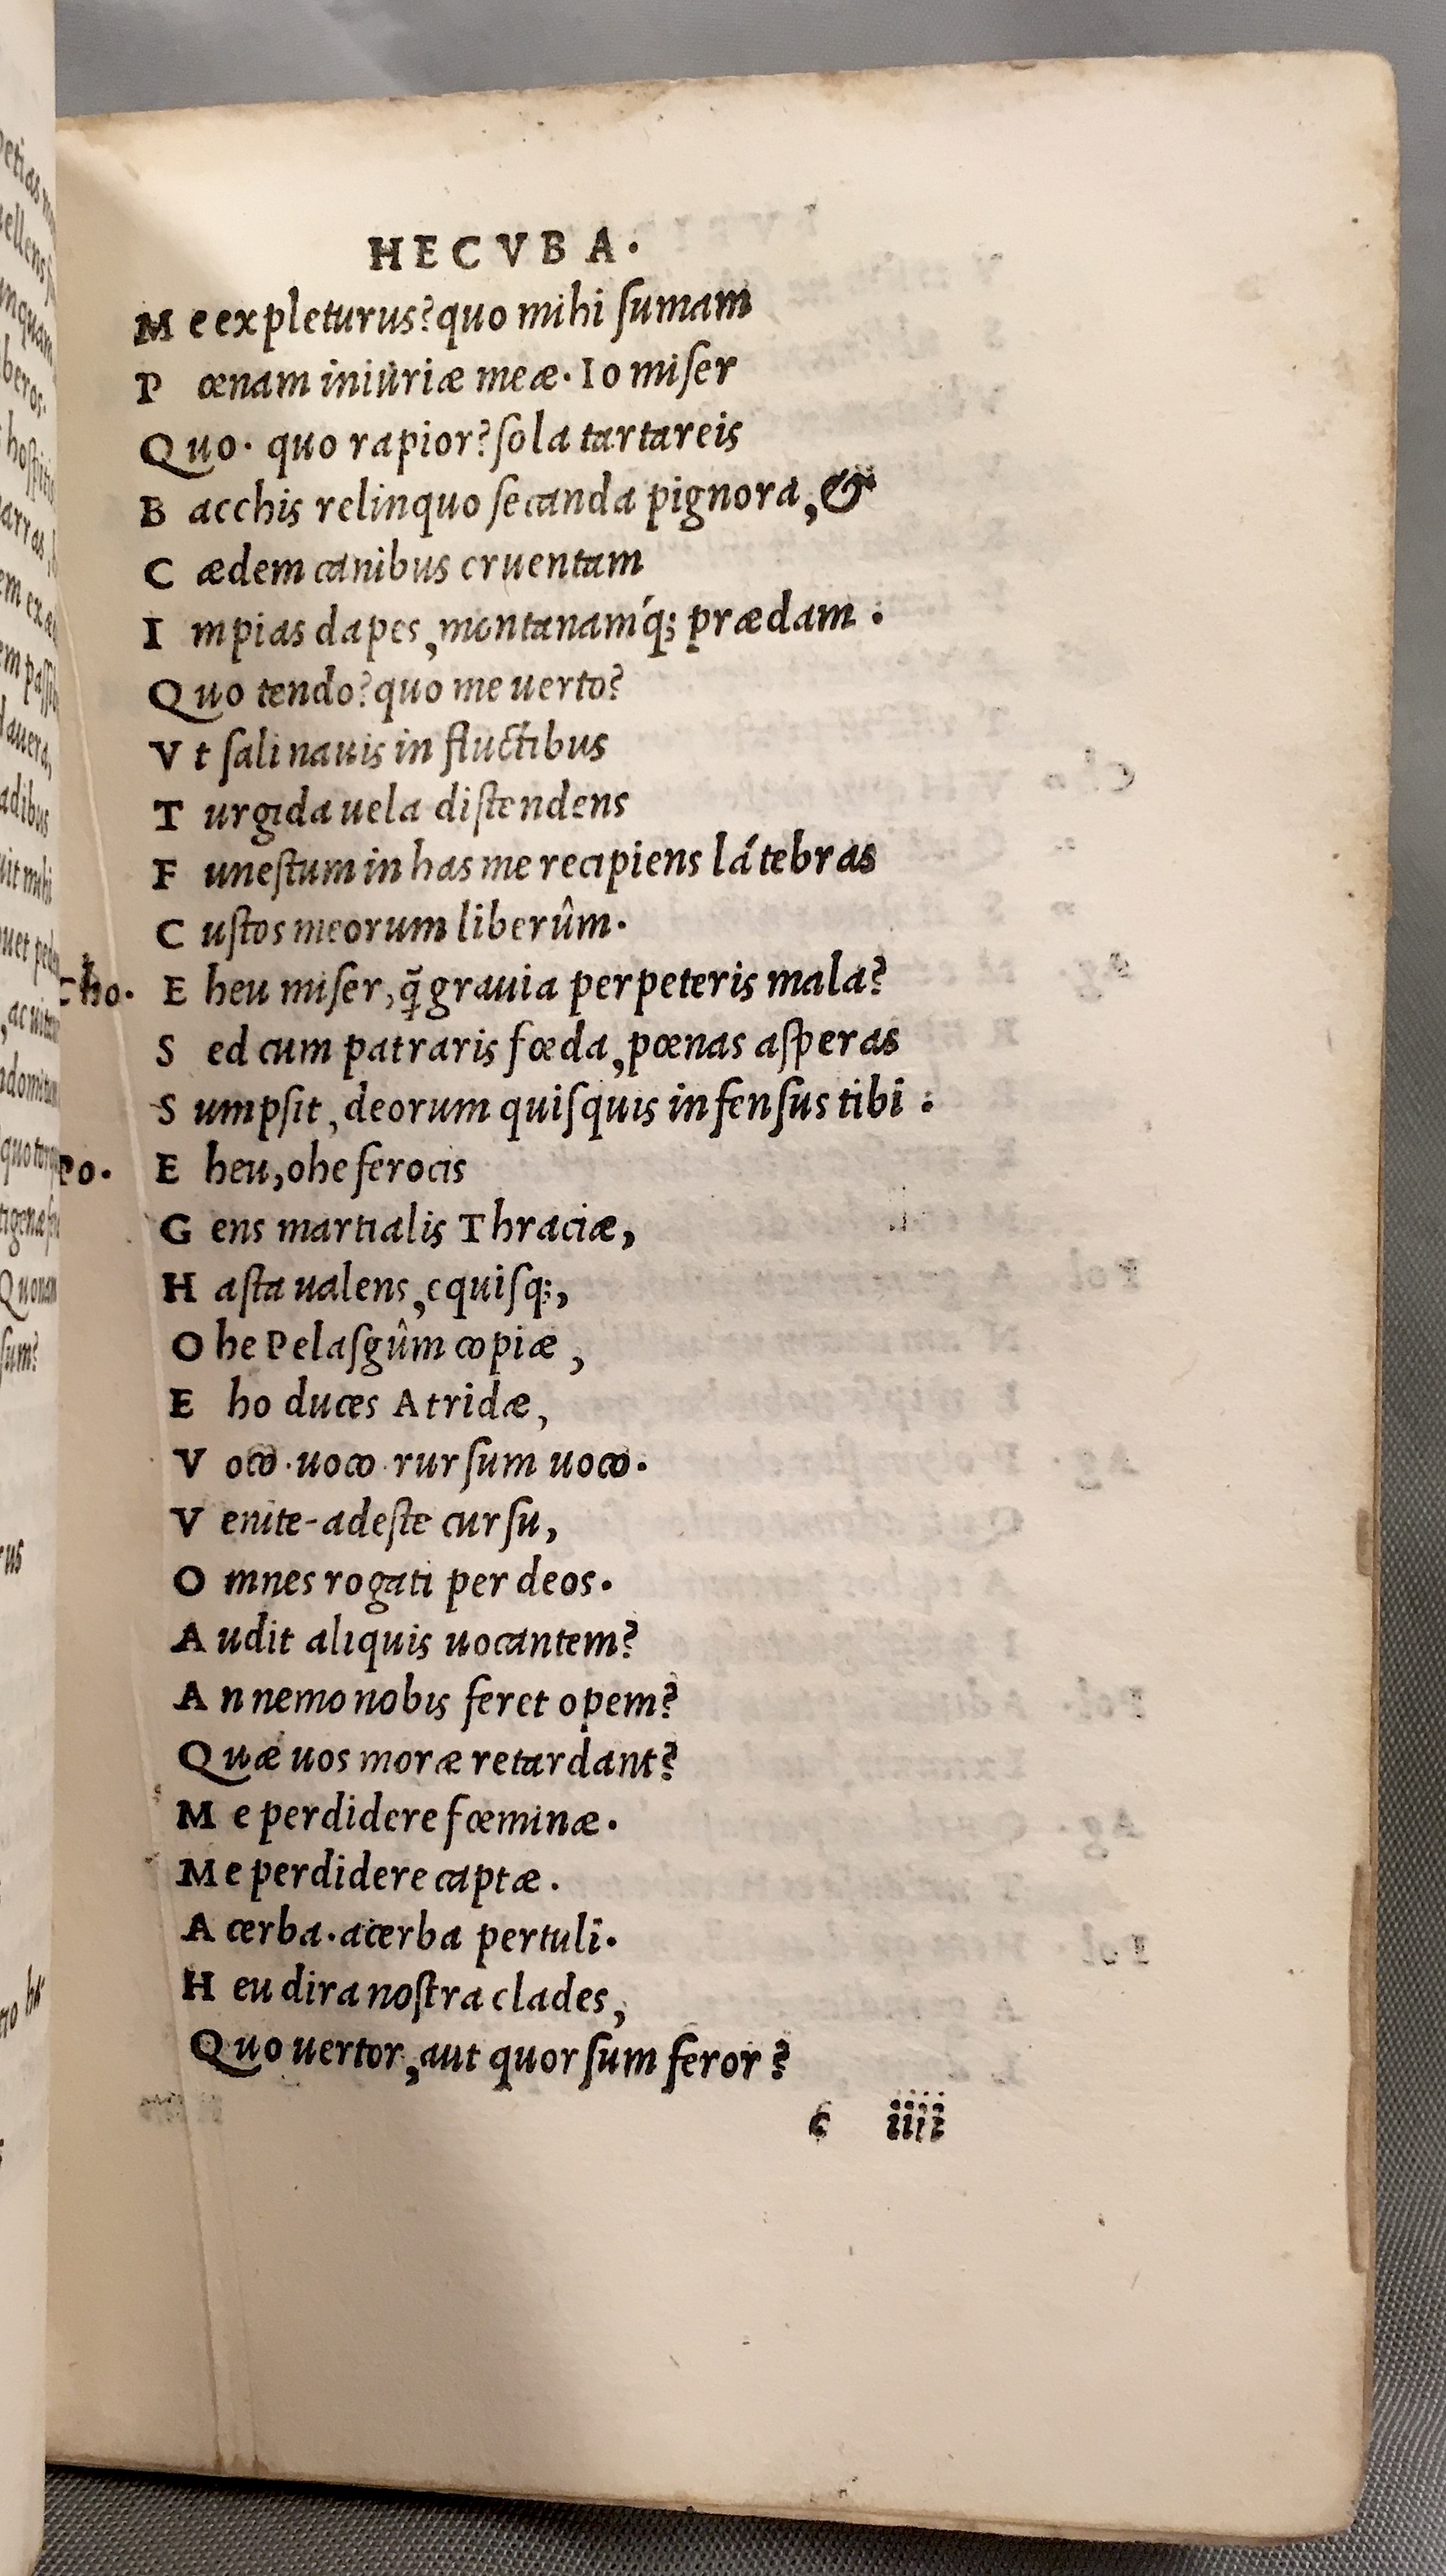 HECVBA.
Me expleturus? quo mihi ſumam
Pœnam iniuriæ meæ. Io miſer
Quo. quo rapior? ſola tartareis
Bacchis relinquo ſecanda pignora, &
Cædem canibus cruentam
Impias dapes, montanamq́; prædam.
Quo tendo? quo me uerto?
Vt ſali nauis in fluctibus
Turgida uela diſtendens
Funeſtum in has me recipiens látebras
Cuſtos meorum liberûm.
Cho. Eheu miſer, q̃ grauia perpeteris mala?
Sed cum patraris fœda, pœnas aſperas
Sumpſit, deorum quiſquis infenſus tibi.
Po. Eheu, ohe ferocis
Gens martialis Thraciæ,
Haſta ualens, equiſq;,
Ohe Pelaſgûm copiæ,
Eho duces Atridæ,
Voco. uoco rurſum uoco.
Venite-adeſte curſu,
Omnes rogati per deos.
Audit aliquis uocantem?
An nemo nobis feret opem?
Quæ uos moræ retardant?
Me perdidere fœminæ.
Me perdidere captæ.
Acerba. acerba pertuli.
Heu dira noſtra clades,
Quo uertor, aut quorſum feror?
c iiii